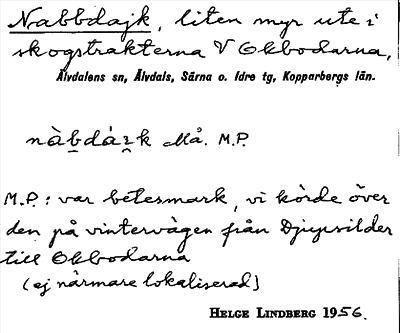 Nabbdajk, liten myr ute i
skogstrakterna V Okbodarna,
Älvdalens sn, Älvdals, Särna o. Idre tg, Kopparbergs län.
nàb̲dáɪ̯k Må. M.P.
M.P.: var betesmark, vi körde över
den på vintervägen från Djupsilder
till Okbodarna
(ej närmare lokaliserad)
HELGE LINDBERG 1956.